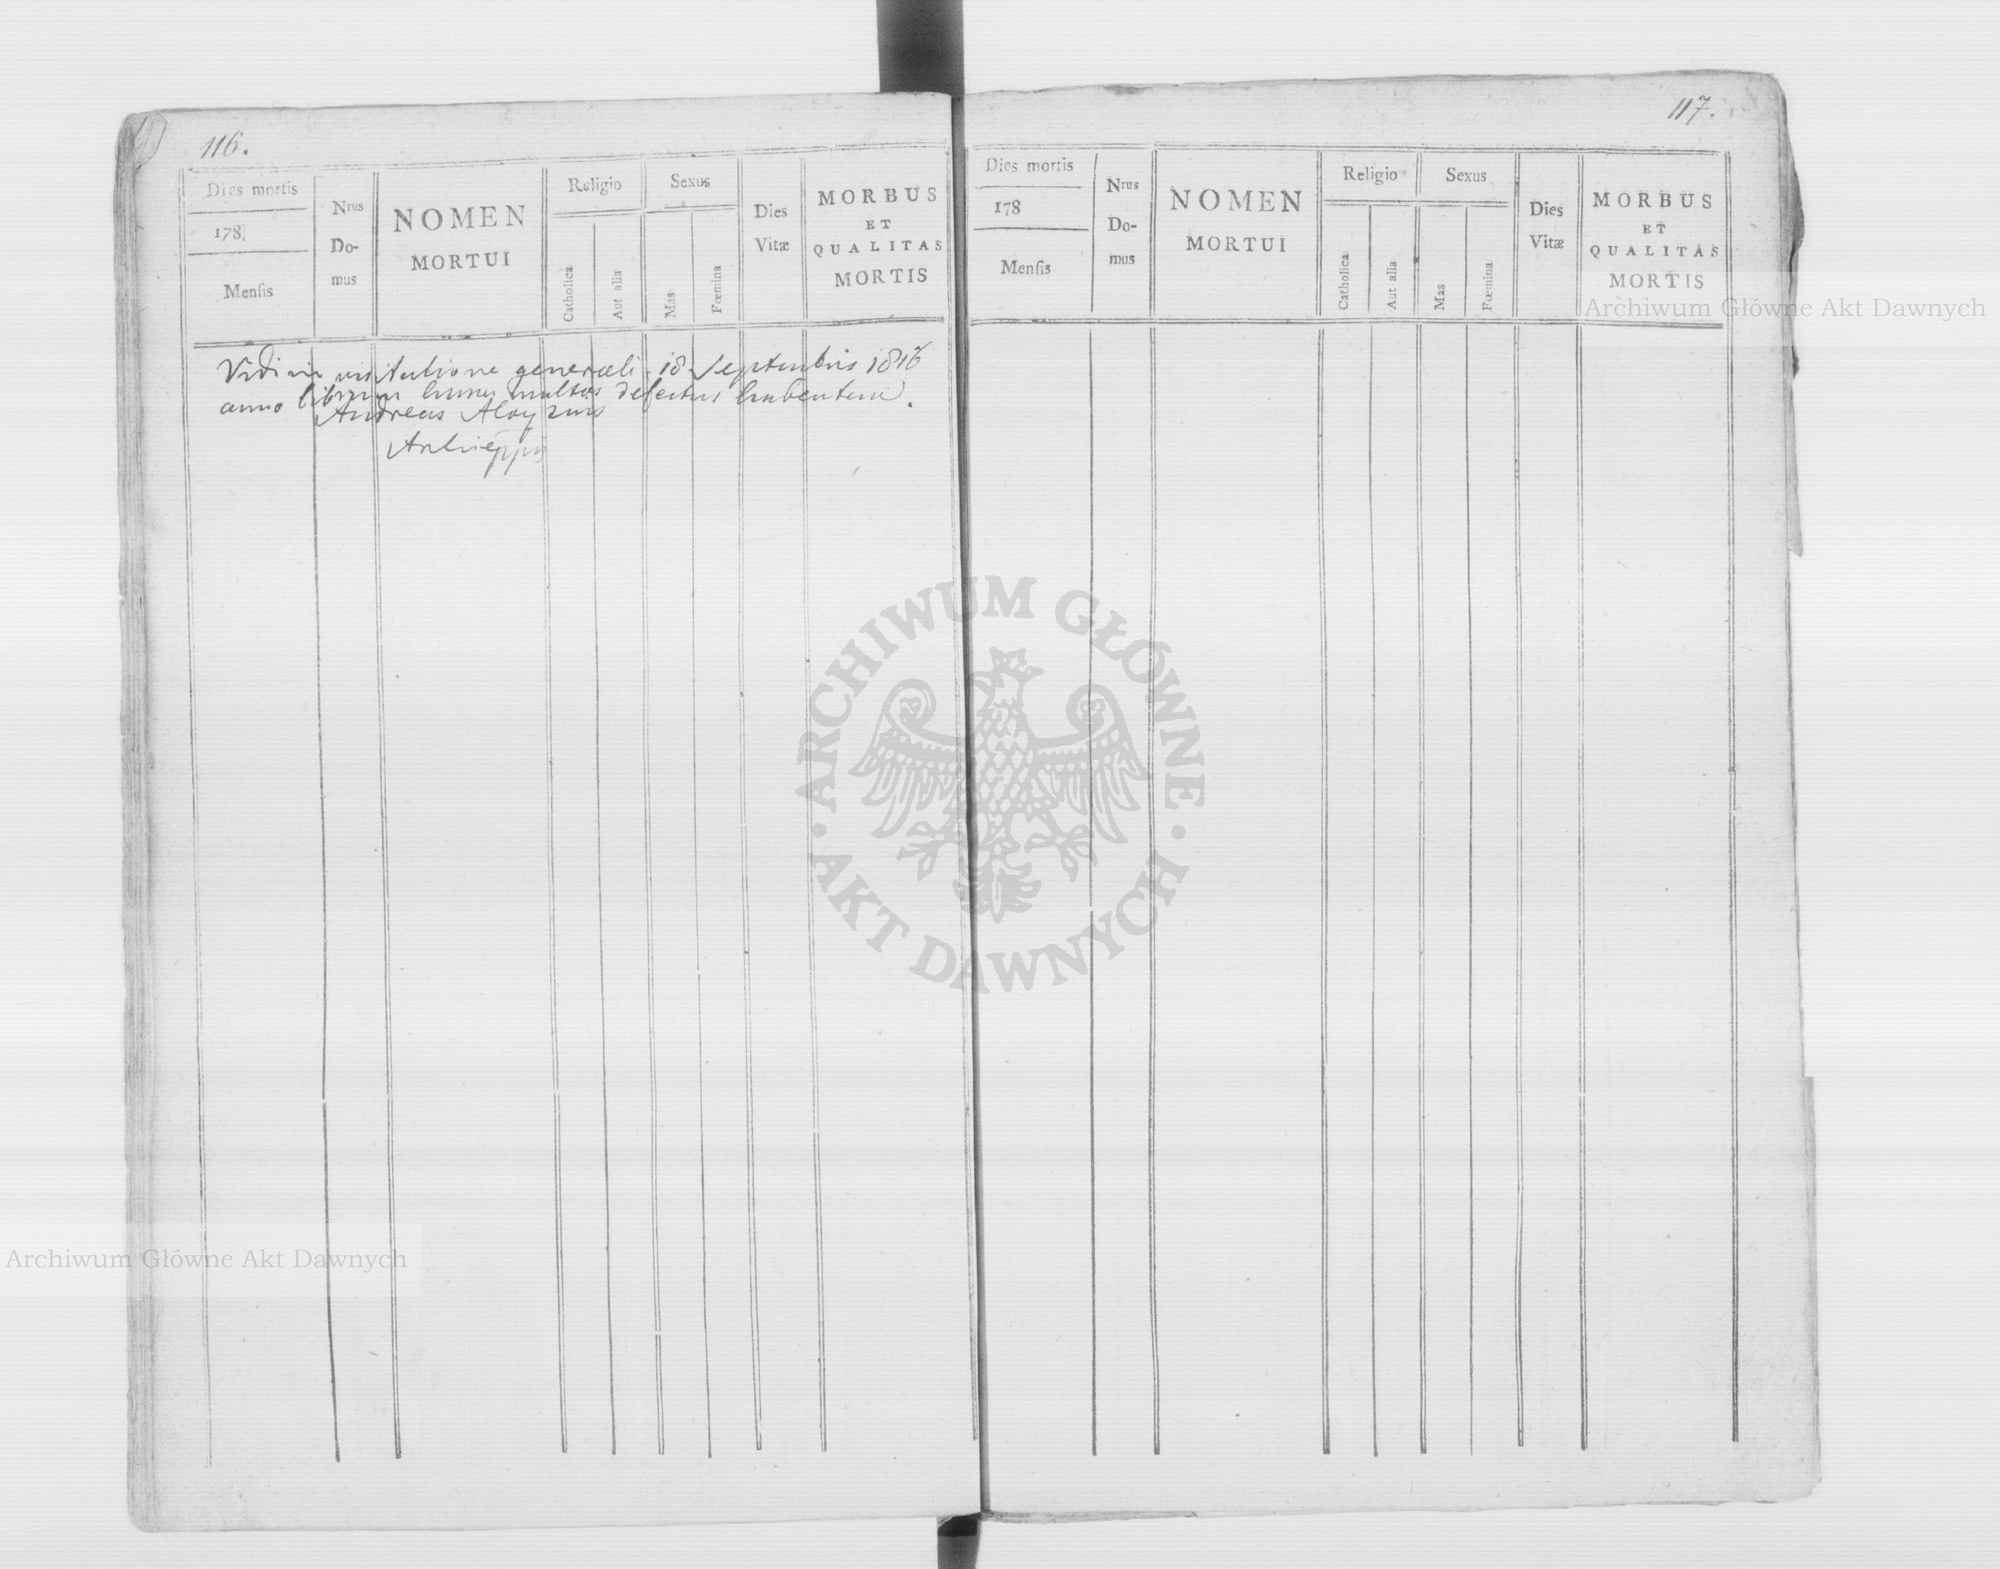 116.
Dies mortis
178
Mensis
Nrus
Do-
mus
NOMEN
MORTUI
Religio
Catholica
Aut alia
Sexus
Mas
Fœmina
Dies
Vitæ
MORBUS
ET
QUALITAS
MORTIS
Vidi in visitatione generali 18 Septembris 1816
anno librum hunc multos defectus habentem.
Andreas Aloysius
Archieppus
117.
Dies mortis
178
Mensis
Nrus
Do-
mus
NOMEN
MORTUI
Religio
Catholica
Aut alia
Sexus
Mas
Fœmina
Dies
Vitæ
MORBUS
ET
QUALITAS
MORTIS
Archiwum Główne Akt Dawnych
ARCHIWUM GŁÓWNE
AKT DAWNYCH
Archiwum Główne Akt Dawnych